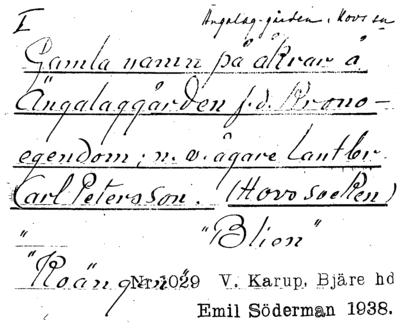 I
Ängalag-gården i Hovs sn
Gamla namn på åkrar å
Ängalaggården f.d. Krono-
egendom; n.v. ägare lantbr.
Carl Petersson. (Hovs socken)
" "Blien"
"Koängen"
Nr. 1029 V. Karup, Bjäre hd
Emil Söderman 1938.